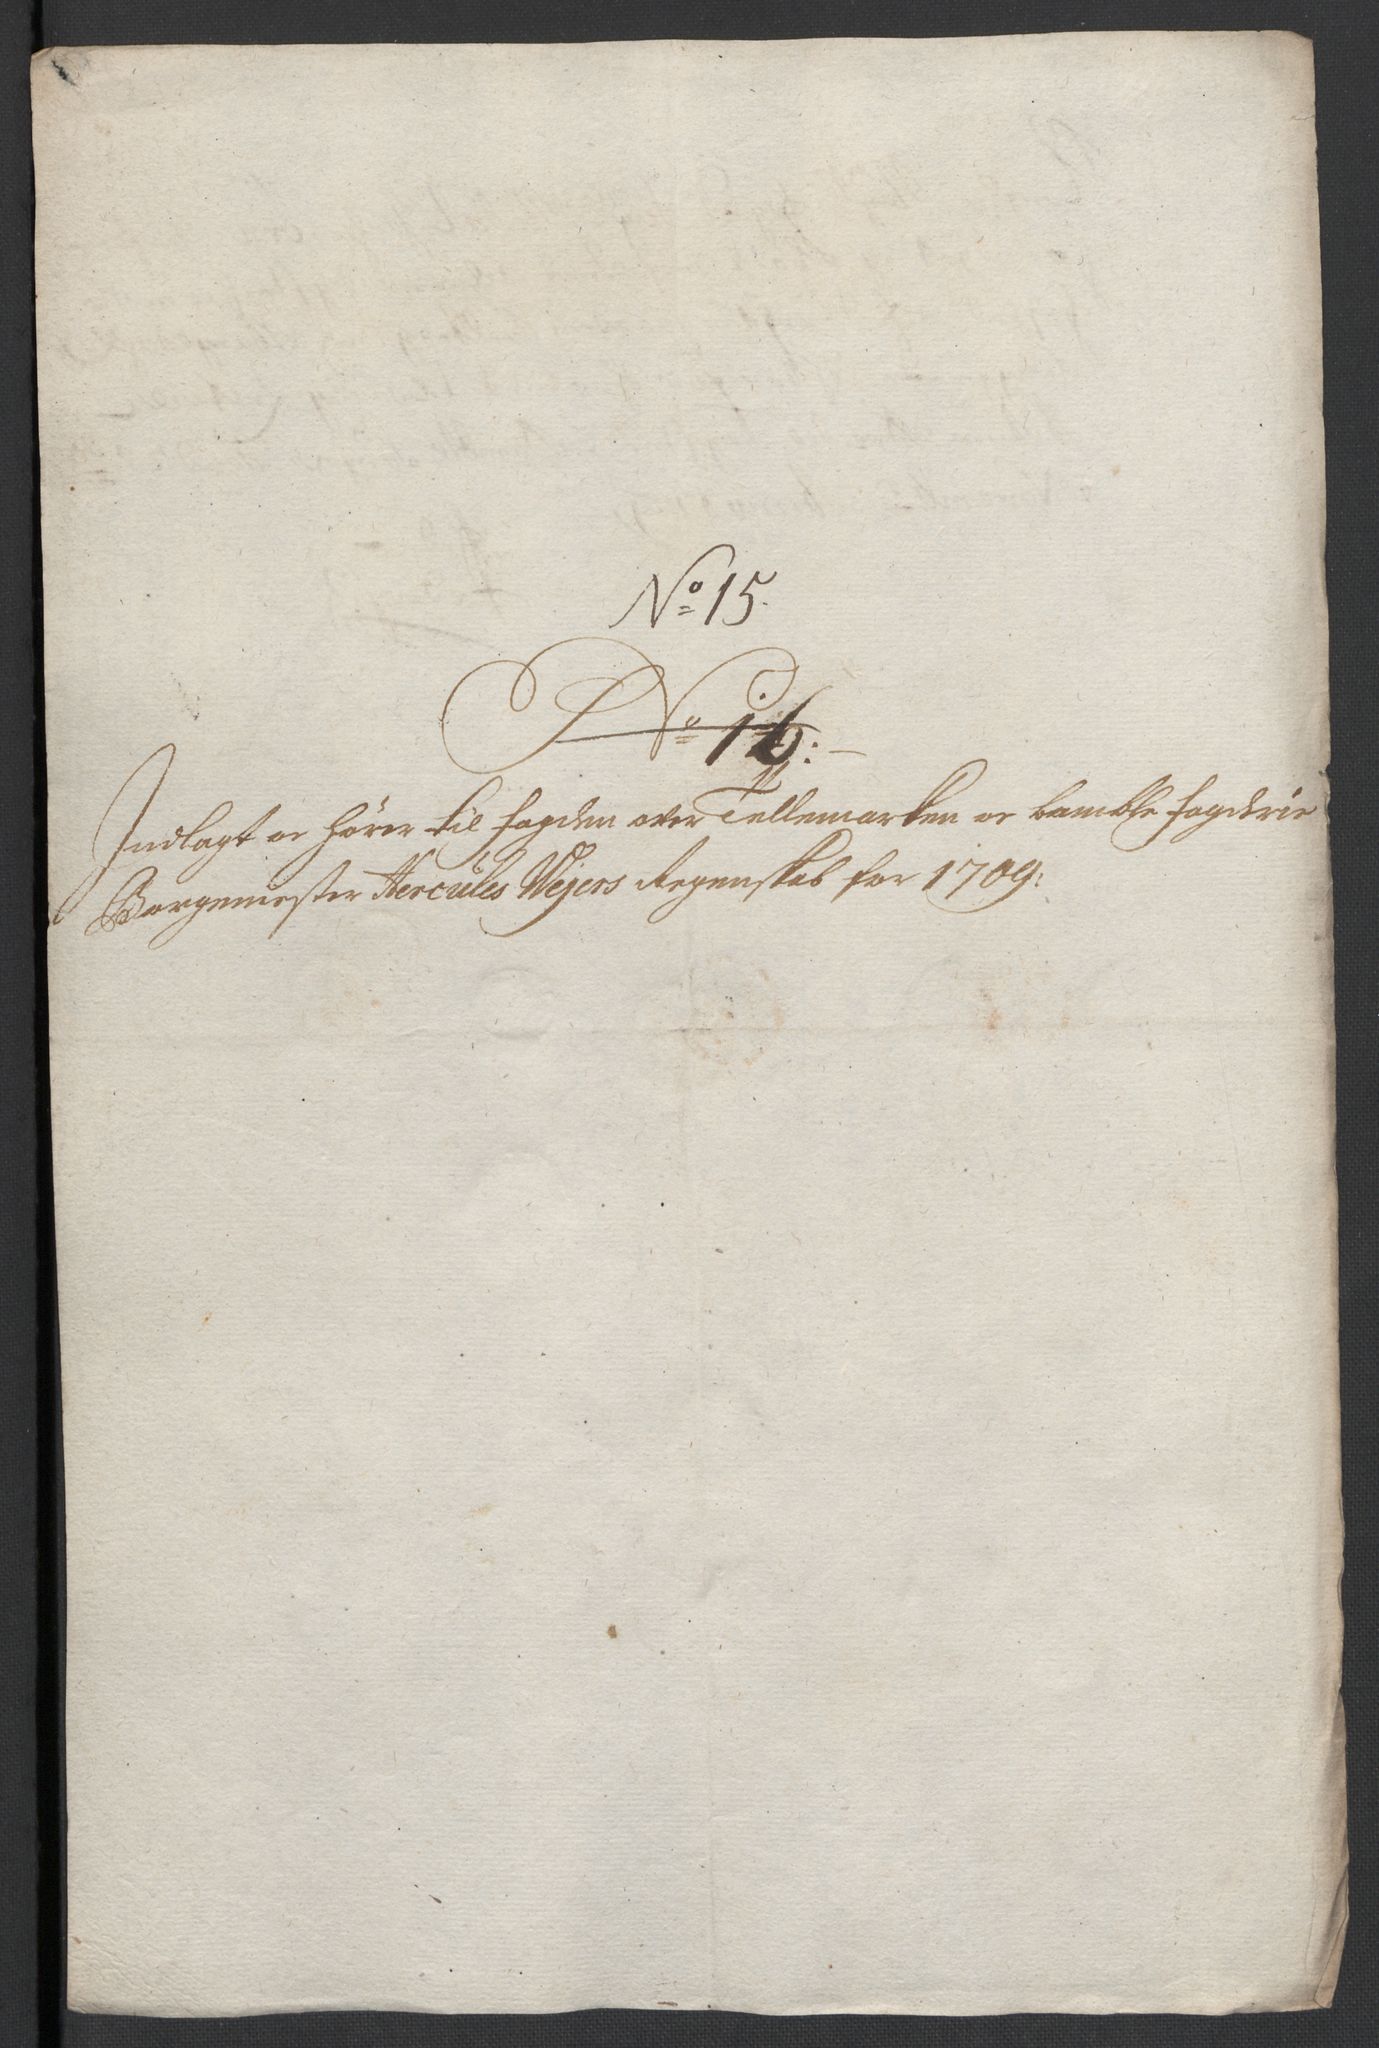 No 15.
No 16:
Indlagt oc hörer til fogden over Tellemarken oc bamble fogderie
Borgemester Hercules Wejers Regenskab for 1709: